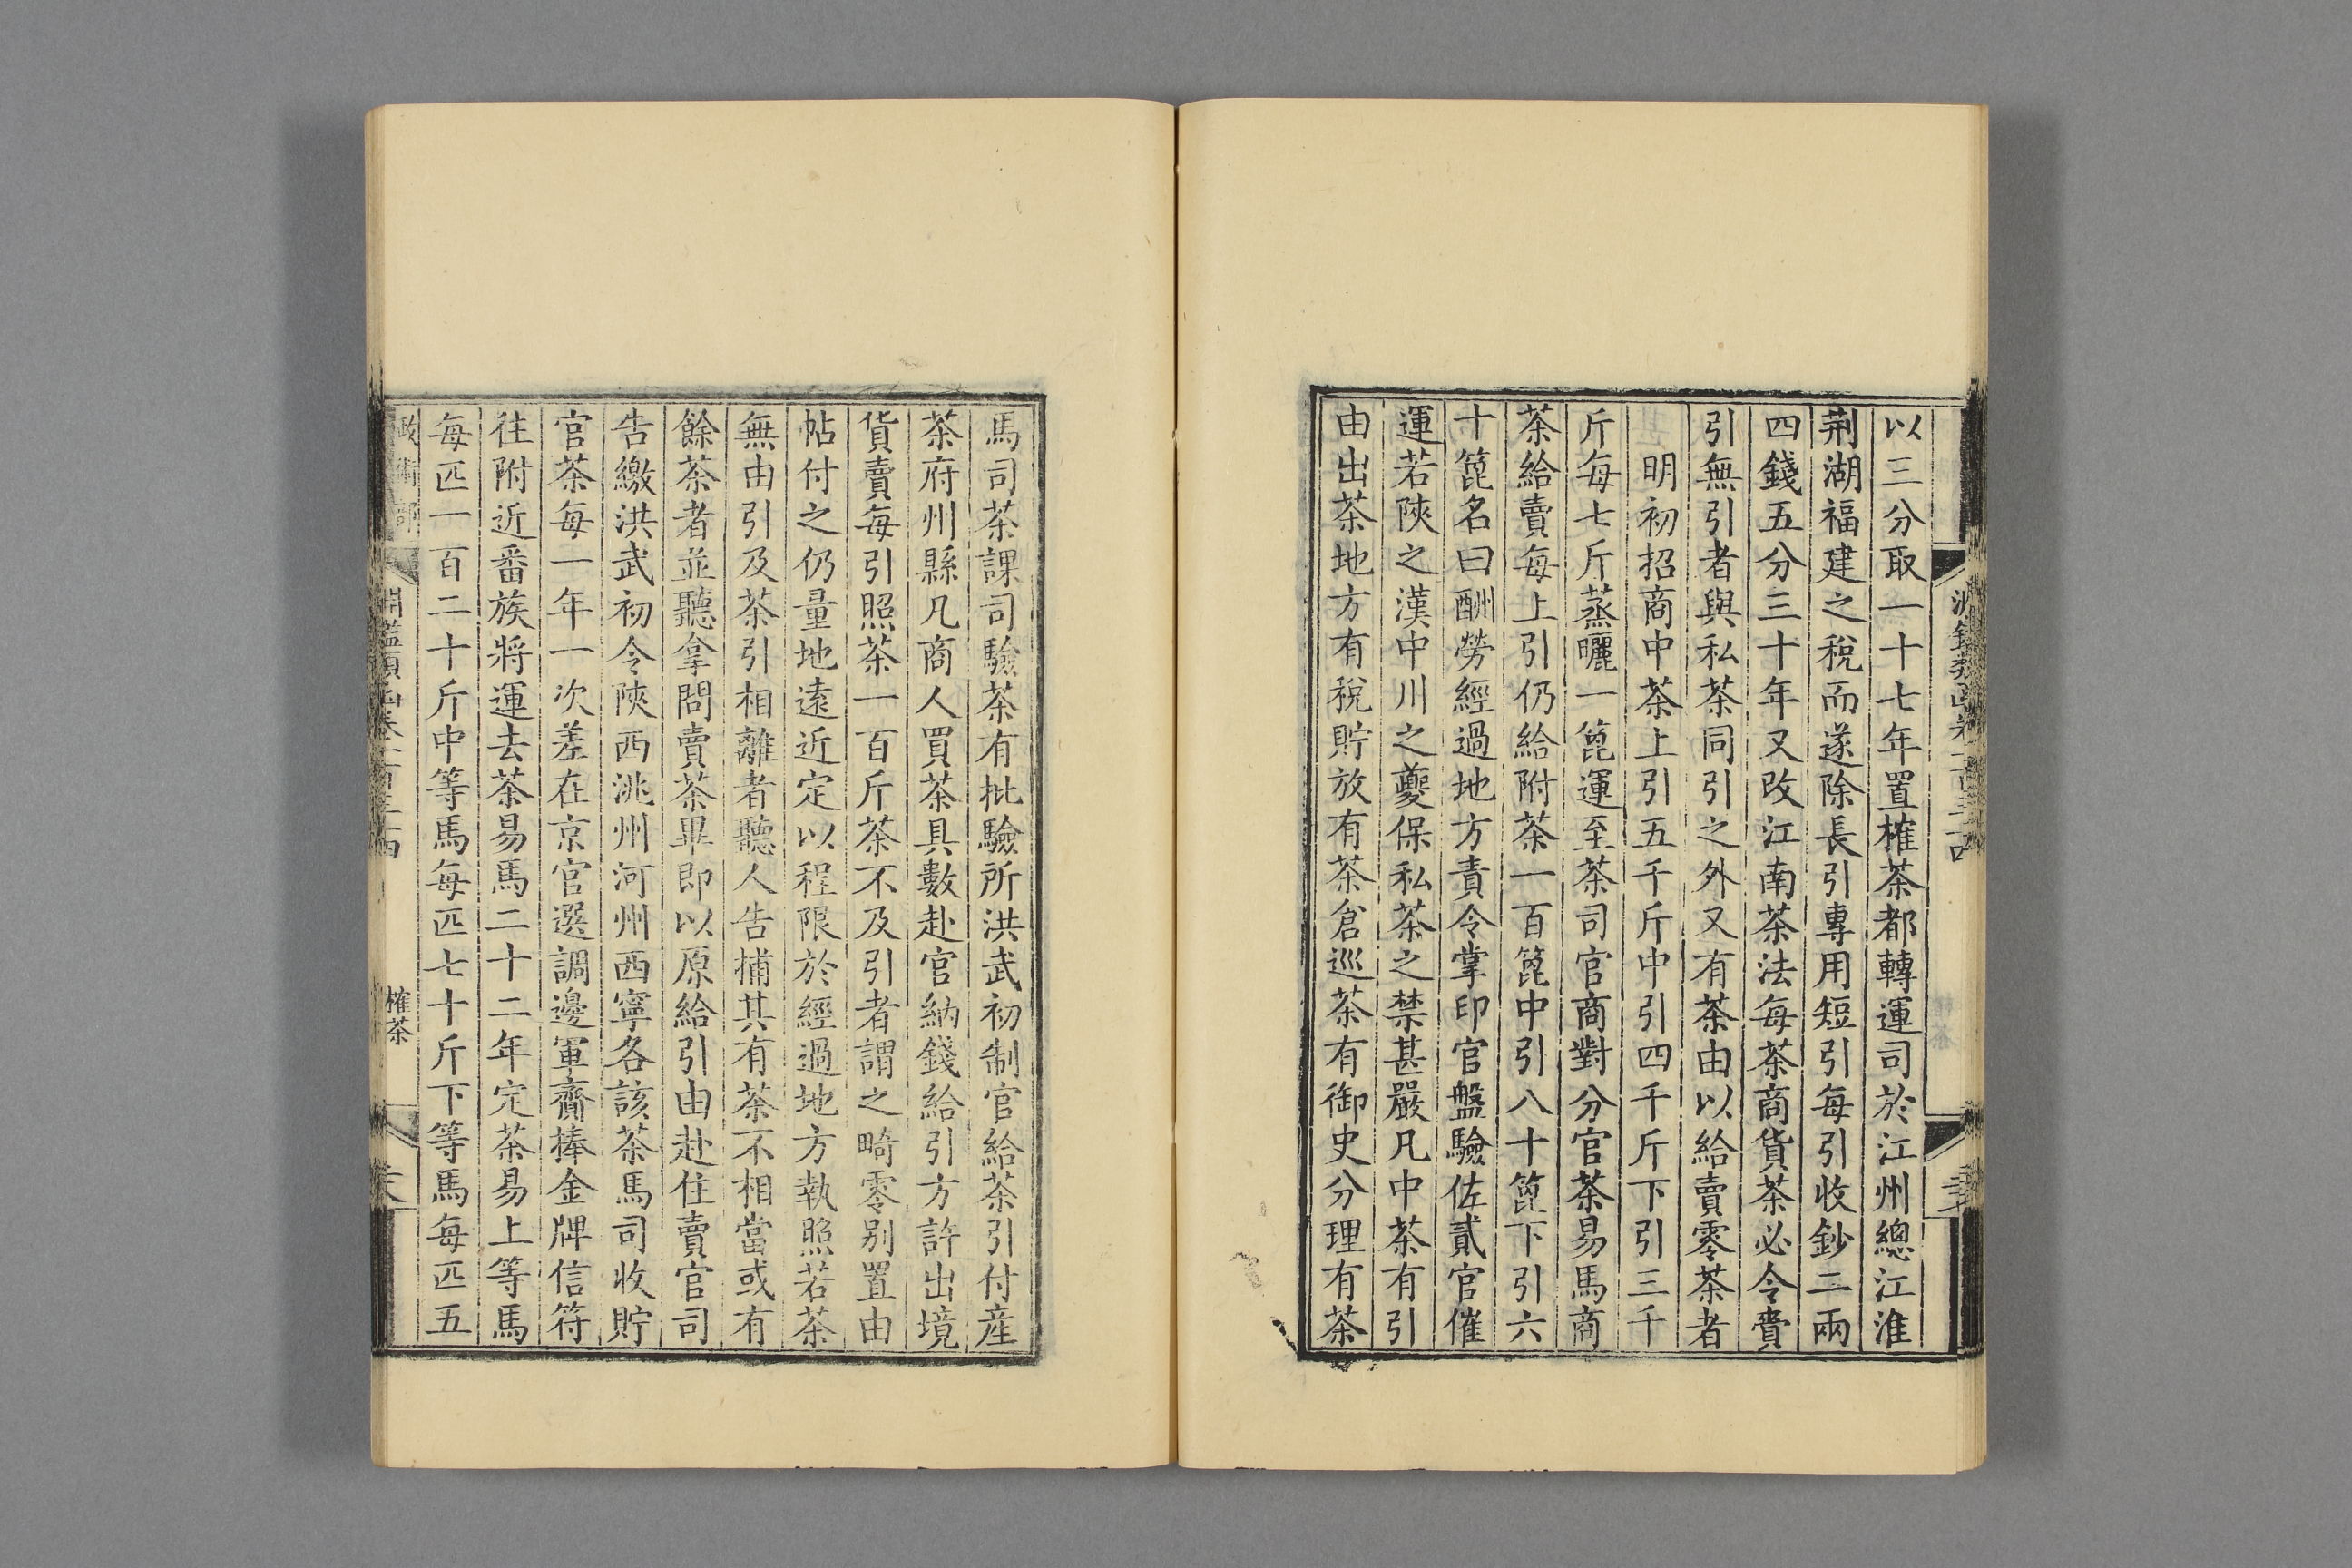 以三分取一十七年置榷茶都轉運司於江州總江淮
荆湖福建之稅而遂除長引專用短引每引收鈔二兩
四錢五分三十年又改江南茶法每茶商貨茶必令賫
引無引者與私茶同引之外又有茶由以給賣零茶者
明初招商中茶上引五千斤中引四千斤下引三千
斤每七斤蒸曬一篦運至茶司官商對分官茶易馬商
茶給賣每上引仍給附茶一百篦中引八十篦下引六
十篦名曰酬勞經過地方責令掌印官盤驗佐貳官催
運若陝之漢中川之夔保私茶之禁甚嚴凡中茶有引
由出茶地方有稅貯放有茶倉巡茶有御史分理有茶
馬司茶課司驗茶有批驗所洪武初制官給茶引付産
茶府州縣凡商人買茶具數赴官納錢給引方許出境
貨賣每引照茶一百斤茶不及引者謂之畸零别置由
帖付之仍量地遠近定以程限於經過地方執照若茶
無由引及茶引相離者聽人告捕其有茶不相當或有
餘茶者並聽拿問賣茶畢即以原給引由赴住賣官司
告繳洪武初令陝西洮州河州西寧各該茶馬司收貯
官茶每一年一次差在京官選調邊軍齎捧金牌信符
往附近番族將運去茶易馬二十二年定茶易上等馬
每匹一百二十斤中等馬每匹七十斤下等馬每匹五
政術部
榷茶